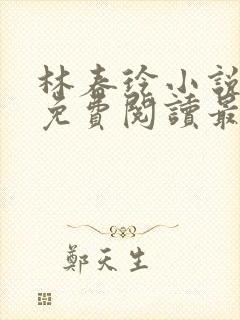 林春玲小說
免費閱讀最
鄭天生